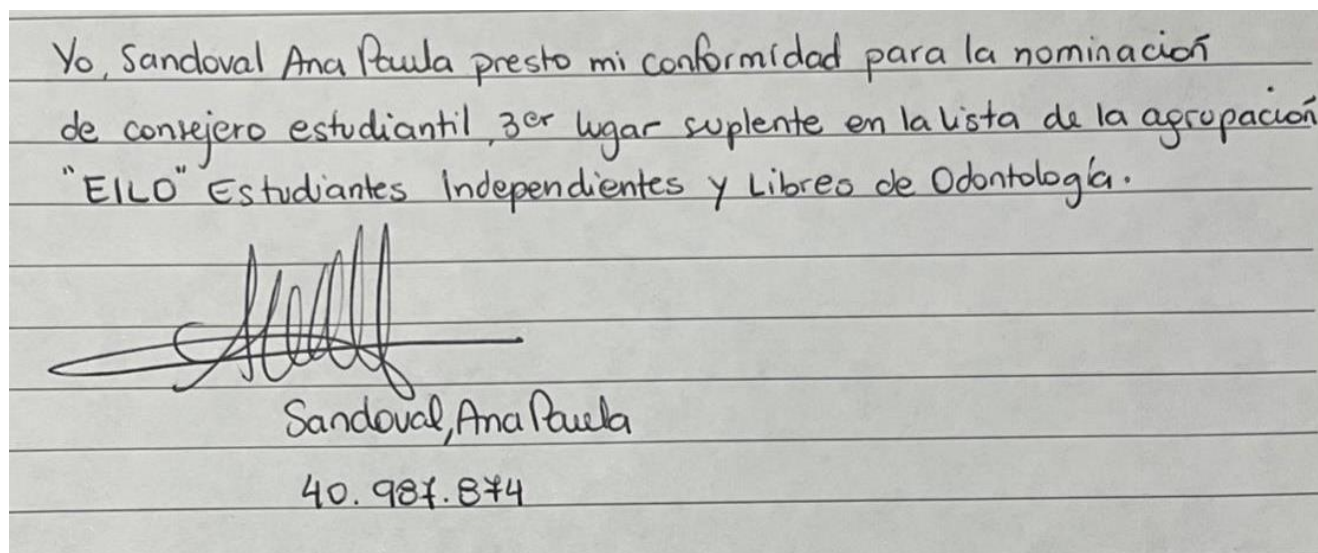 Yo, Sandoval Ana Paula presto mi conformidad para la nominación
de consejero estudiantil, 3er lugar suplente en la lista de la agrupación
"EILO" Estudiantes Independientes y Libres de Odontología.
Sandoval, Ana Paula
40.987.874